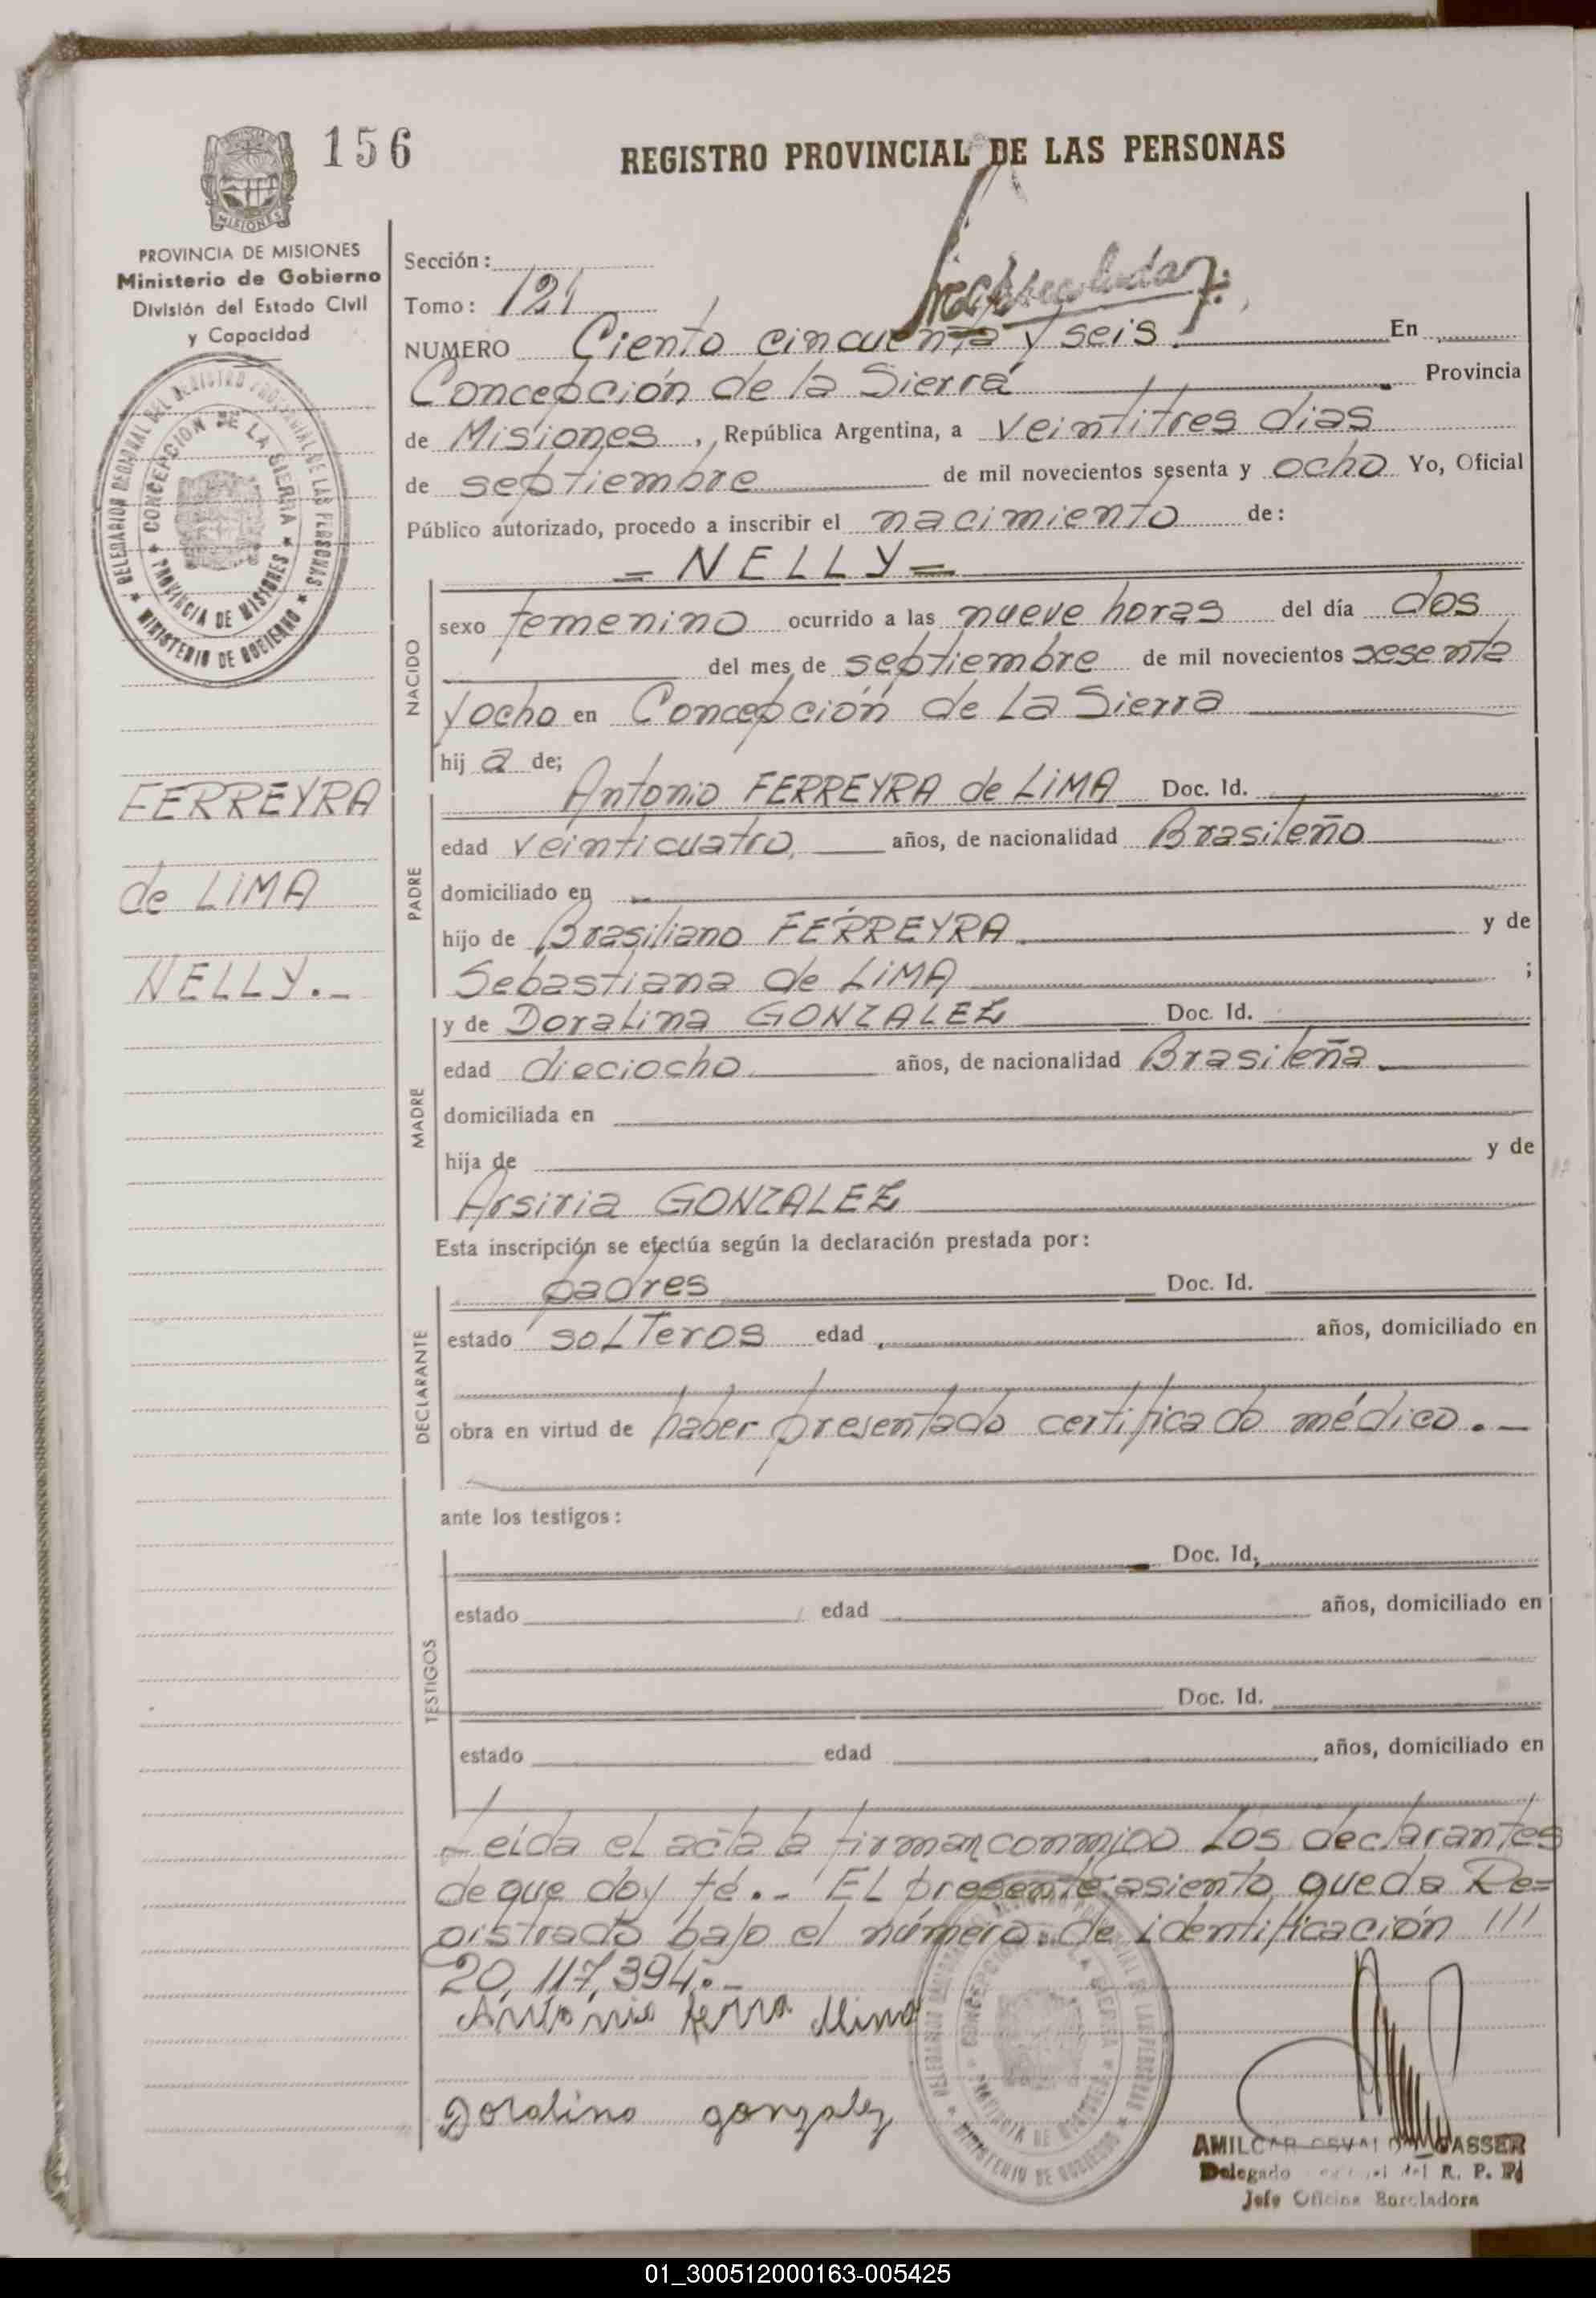 156
REGISTRO PROVINCIAL DE LAS PERSONAS
MISIONES
PROVINCIA DE MISIONES
Ministerio de Gobierno
División del Estado Civil
y Capacidad
Sección:
Tomo: 121
NUMERO Ciento cincuenta y seis. En
Concepción de la Sierra Provincia
de Misiones, República Argentina, a veintitres dias
de septiembre de mil novecientos sesenta y ocho Yo, Oficial
Público autorizado, procedo a inscribir el nacimiento de:
= NELLY =
DELEGACION REGIONAL DEL REGISTRO PROVINCIAL DE LAS PERSONAS
* MINISTERIO DE GOBIERNO *
* CONCEPCION DE LA SIERRA *
PROVINCIA DE MISIONES
NACIDO
sexo femenino ocurrido a las nueve horas del día dos
del mes de septiembre de mil novecientos sesenta
y ocho en Concepción de La Sierra
hij a de;
FERREYRA
de LIMA
NELLY.-
PADRE
Antonio FERREYRA de LIMA Doc. Id.
edad veinticuatro, años, de nacionalidad Brasileño
domiciliado en
hijo de Brasiliano FERREYRA y de
Sebastiana de LIMA ;
MADRE
y de Doralina GONZALEZ Doc. Id.
edad dieciocho años, de nacionalidad Brasileña
domiciliada en
hija de y de
Arsiria GONZALEZ
Esta inscripción se efectúa según la declaración prestada por:
DECLARANTE
padres Doc. Id.
estado solteros edad años, domiciliado en
obra en virtud de haber presentado certificado médico.-
ante los testigos:
TESTIGOS
Doc. Id.
estado edad años, domiciliado en
Doc. Id.
estado edad años, domiciliado en
Leida el acta la firman conmigo Los declarantes
de que doy fé.- EL presente asiento queda Re=
gistrado bajo el número de identificación ///
20,117,394.-
Antonio
Doralina gonzalez
AMILCAR OSVALDO GASSER
Delegado R. P. P.
Jefe Oficina
01_300512000163-005425